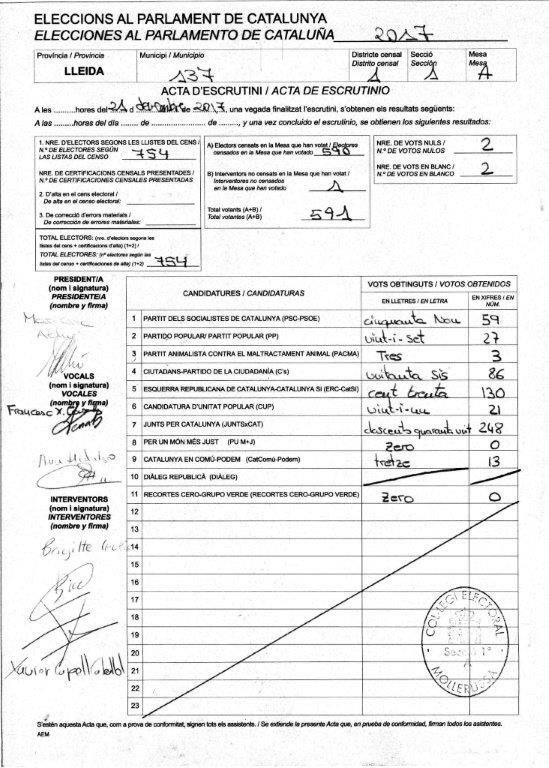 ELECCIONS AL PARLAMENT DE CATALUNYA
ELECCIONES AL PARLAMENTO DE CATALUÑA 2017
Província / Provincia
LLEIDA
Municipi / Municipio
137
Districte censal
Distrito censal
1
Secció
Sección
1
Mesa
Mesa
A
ACTA D'ESCRUTINI / ACTA DE ESCRUTINIO
A les ..........hores del 21 d desembre de 2017, una vegada finalitzat l'escrutini, s'obtenen els resultats següents:
A las ..........hores del día ........ de .................. de .........., y una vez concluido el escrutinio, se obtienen los siguientes resultados:
1. NRE. D'ELECTORS SEGONS LES LLISTES DEL CENS /
N.º DE ELECTORES SEGÚN
LAS LISTAS DEL CENSO 754
NRE. DE CERTIFICACIONS CENSALS PRESENTADES /
N.º DE CERTIFICACIONES CENSALES PRESENTADAS
2. D'alta en el cens electoral /
De alta en el censo electoral:
3. De correcció d'errors materials /
De corrección de errores materiales:
TOTAL ELECTORS: (nre. d'electors segons les
llistes del cens + certificacions d'alta) (1+2) /
TOTAL ELECTORES: (nº electores según las
listas del censo + certificaciones de alta) (1+2) 754
A) Electors censats en la Mesa que han votat / Electores
censados en la Mesa que han votado 590
B) Interventors no censats en la Mesa que han votat /
Interventores no censados
en la Mesa que han votado 1
Total votants (A+B) /
Total votantes (A+B) 591
NRE. DE VOTS NULS /
N.º DE VOTOS NULOS 2
NRE. DE VOTS EN BLANC /
N.º DE VOTOS EN BLANCO 2
PRESIDENT/A
(nom i signatura)
PRESIDENTE/A
(nombre y firma)
VOCALS
(nom i signatura)
VOCALES
(nombre y firma)
Francesc X.
Ana Hidalgo
INTERVENTORS
(nom i signatura)
INTERVENTORES
(nombre y firma)
Brigitte
Xavier
CANDIDATURES / CANDIDATURAS
VOTS OBTINGUTS / VOTOS OBTENIDOS
EN LLETRES / EN LETRA
EN XIFRES / EN NÚM.
1 PARTIT DELS SOCIALISTES DE CATALUNYA (PSC-PSOE) cinquanta Nou 59
2 PARTIDO POPULAR/ PARTIT POPULAR (PP) vint-i-set 27
3 PARTIT ANIMALISTA CONTRA EL MALTRACTAMENT ANIMAL (PACMA) Tres 3
4 CIUTADANS-PARTIDO DE LA CIUDADANÍA (C's) vuitanta sis 86
5 ESQUERRA REPUBLICANA DE CATALUNYA-CATALUNYA SI (ERC-CatSí) cent trenta 130
6 CANDIDATURA D'UNITAT POPULAR (CUP) vint-i-un 21
7 JUNTS PER CATALUNYA (JUNTSxCAT) doscents quaranta vuit 248
8 PER UN MÓN MÉS JUST (PU M+J) Zero 0
9 CATALUNYA EN COMÚ-PODEM (CatComú-Podem) tretze 13
10 DIÀLEG REPUBLICÀ (DIÀLEG)
11 RECORTES CERO-GRUPO VERDE (RECORTES CERO-GRUPO VERDE) Zero 0
12
13
14
15
16
17
18
19
20
21
22
23
COL·LEGI ELECTORAL
Secció 1ª
A
MOLLERUSSA
S'estén aquesta Acta que, com a prova de conformitat, signen tots els assistents. / Se extiende la presente Acta que, en prueba de conformidad, firman todos los asistentes.
AEM